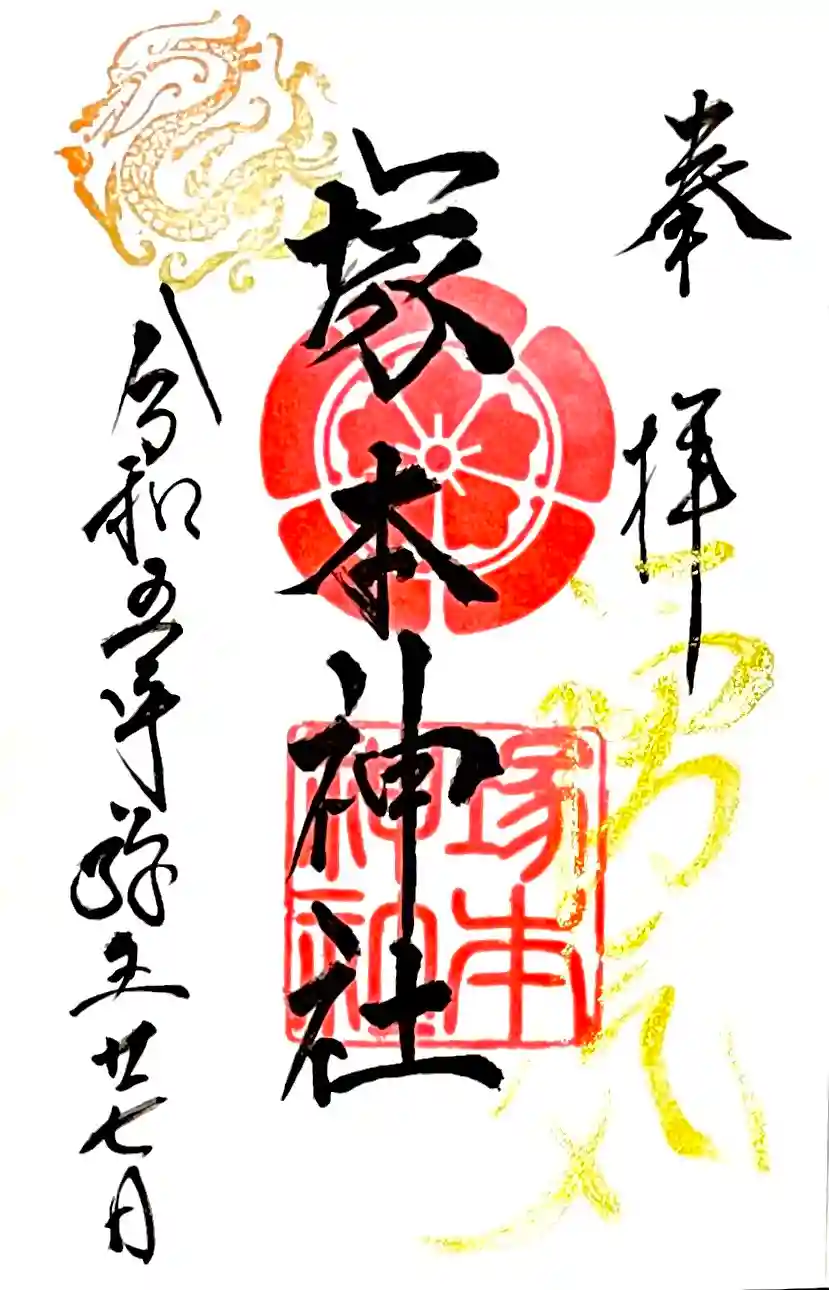 奉拝
塚本神社
塚本
神社
令和五年弥生廿七日